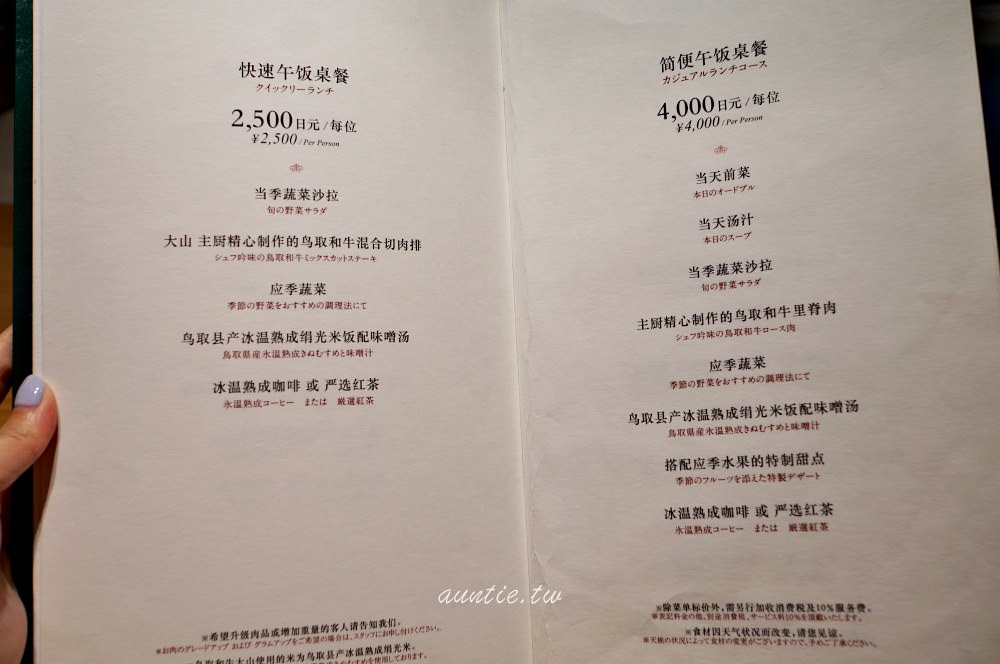 快速午饭桌餐
クイックリーランチ
2,500日元 / 每位
¥2,500 / Per Person
当季蔬菜沙拉
旬の野菜サラダ
大山 主厨精心制作的鸟取和牛混合切肉排
シェフ吟味の鳥取和牛ミックスカットステーキ
应季蔬菜
季節の野菜をおすすめの調理法にて
鸟取县产冰温熟成绢光米饭配味噌汤
鳥取県産氷温熟成きぬむすめと味噌汁
冰温熟成咖啡 或 严选红茶
氷温熟成コーヒー または 厳選紅茶
※希望升级肉品或增加重量的客人请告知我们。
※お肉のグレードアップ および グラムアップをご希望の場合は、スタッフにお申し付けください。
鸟取和牛大山使用的米为鸟取县产冰温熟成绢光米。
简便午饭桌餐
カジュアルランチコース
4,000日元 / 每位
¥4,000 / Per Person
当天前菜
本日のオードブル
当天汤汁
本日のスープ
当季蔬菜沙拉
旬の野菜サラダ
主厨精心制作的鸟取和牛里脊肉
シェフ吟味の鳥取和牛ロース肉
应季蔬菜
季節の野菜をおすすめの調理法にて
鸟取县产冰温熟成绢光米饭配味噌汤
鳥取県産氷温熟成きぬむすめと味噌汁
搭配应季水果的特制甜点
季節のフルーツを添えた特製デザート
冰温熟成咖啡 或 严选红茶
氷温熟成コーヒー または 厳選紅茶
※除菜单标价外,需另行加收消费税及10%服务费。
※表記料金の他、別途消費税、サービス料10%を頂戴いたします。
※食材因天气状况而改变,请您见谅。
※天候の状況によって食材の変更がございますので、予めご了承ください。
auntie.tw